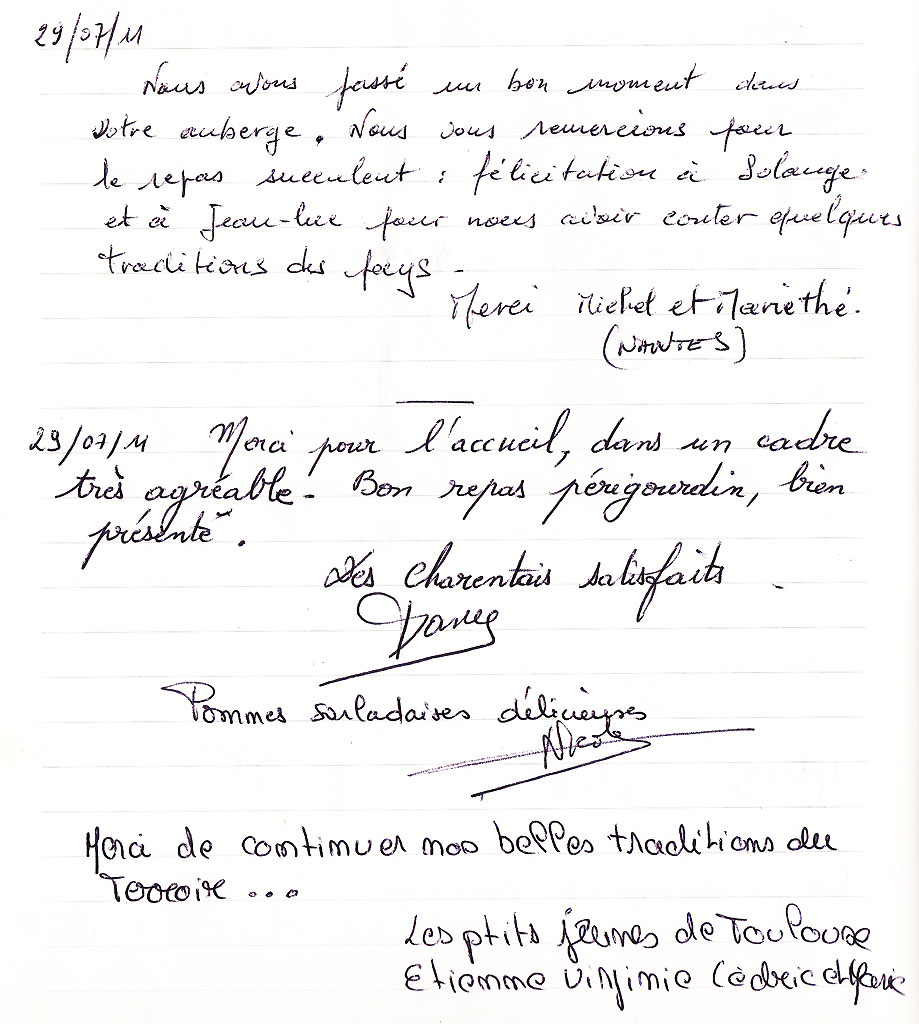 29/07/11
Nous avons passé un bon moment dans
votre auberge. Nous vous remercions pour
le repas succulent : félicitation à Solange.
et à Jean-luc pour nous avoir conter quelques
traditions des pays -
Merci Michel et Mariethé.
(NANTES)
29/07/11 Merci pour l'accueil, dans un cadre
très agréable - Bon repas périgourdin, bien
présenté.
Des Charentais satisfaits
Pommes sarladaises délicieuses
Nicole
Merci de continuer nos belles traditions du
Terroire ...
Les ptits jeunes de Toulouse
Etienne Virginie Cédric et Marie